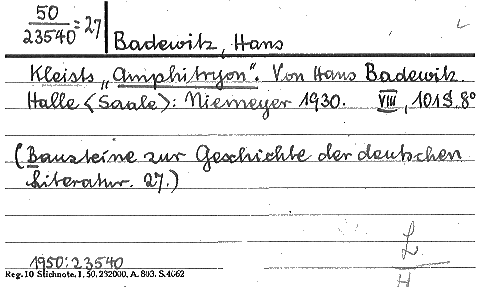 50
23540 = 27
Badewitz, Hans
Kleists „Amphitryon". Von Hans Badewitz.
Halle (Saale): Niemeyer 1930. VIII, 101 S. 8°
(Bausteine zur Geschichte der deutschen
Literatur. 27.)
1950: 23540
L
H
Reg. 10 Stichnote. I. 50. 232000. A. 803. S. 4062